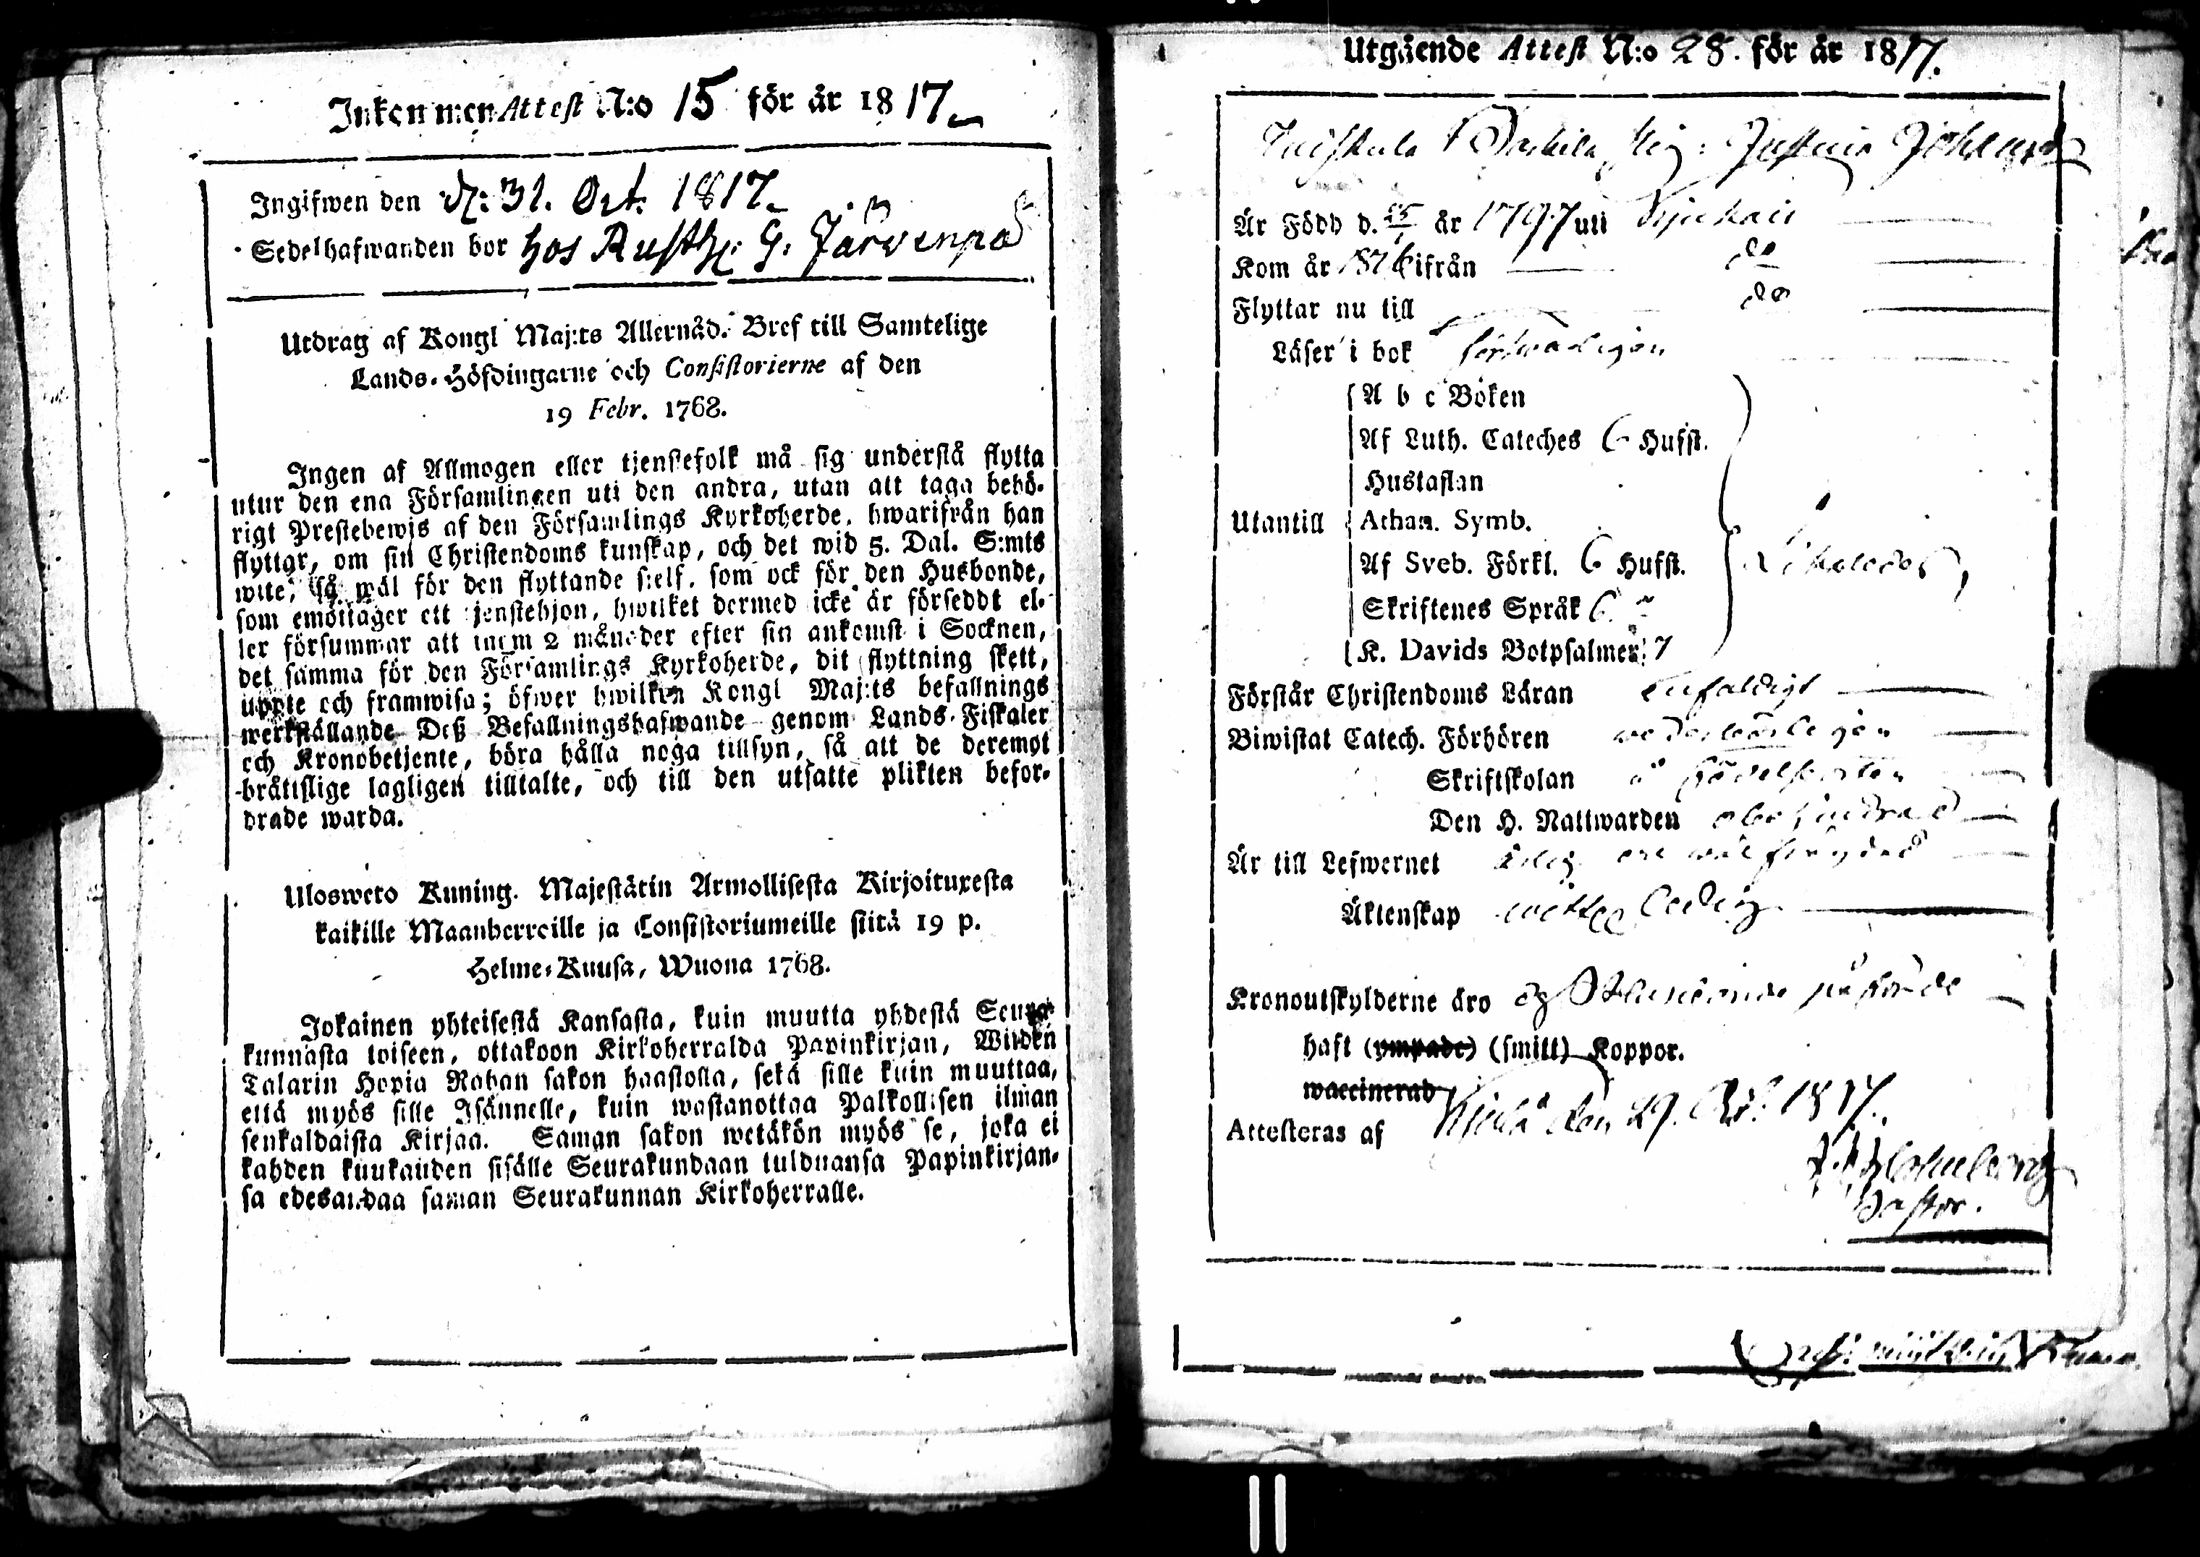 Inkommen Attest N:o 15 för år 1817
Ingifwen den d: 31. Oct. 1817
Sedelhafwanden bor hos Rusth: G. Järvenpä
Utdrag af Kongl Maj:ts Allernåd. Bref till Samtelige
Lands-Höfdingarne och Consistorierne af den
19 Febr. 1768.
Ingen af Allmogen eller tjenstefolk må sig understå flytta
utur den ena Församlingen uti den andra, utan att taga behö-
rigt Prestebewis af den Församlings Kyrkoherde, hwarifrån han
flyttar, om sin Christendoms kunskap, och det wid 5. Dal. S:mts
wite, så wäl för den flyttande sielf, som ock för den Husbonde,
som emottager ett tjenstehjon, hwilket dermed icke är försedt el-
ler försummar att inom 2 månader efter sin ankomst i Socknen,
det samma för den Församlings Kyrkoherde, dit flyttning skett,
uppte och framwisa; öfwer hwilken Kongl Maj:ts befallnings
werkställande Deß Befallningshafwande genom Lands-Fiskaler
och Kronobetjente, böra hålla noga tillsyn, så att de deremot
bråttslige lagligen tilltalte, och till den utsatte plikten befor-
drade warda.
Ulosweto Kuning. Majestätin Armollisesta Kirjoituxesta
kaikille Maanherroille ja Consistoriumeille siitä 19 p.
Helme-Kuusa, Wuona 1768.
Jokainen yhteisestä Kansasta, kuin muutta yhdestä Seura-
kunnasta toiseen, ottakoon Kirkoherralda Papinkirjan, Wiiden
Talarin Hopia Rahan sakon haastolla, sekä sille kuin muuttaa,
että myös sille Isännelle, kuin wastanottaa Palkollisen ilman
senkaldaista Kirjaa. Saman sakon wetäkön myös se, joka ei
kahden kuukauden sisälle Seurakundaan tulduansa Papinkirjan-
sa edesandaa saman Seurakunnan Kirkoherralle.
Utgående Attest N:o 28. för år 1817.
Johansd
Är Född d. år 1797 uti
Kom år 1816 ifrån do
Flyttar nu till do
Läser i bok försvarligen
A b c Boken
Af Luth. Cateches 6 Hufst.
Hustaflan
Utantill Athan. Symb.
Af Sveb. Förkl. 6 Hufst.
Skriftenes Språk 6
K. Davids Botpsalmer 7
Förstår Christendoms Läran enfaldigt
Biwistat Catech. Förhören wederbörligen
Skriftskolan
Den H. Nattwarden obehindrad
Är till Lefwernet ärlig och wäl frejdad
Äktenskap ledig
Kronoutskylderne äro
haft (ympade) (smitt) Koppor.
waccinerad
Attesteras af den 29. Oct. 1817.
Pastor.